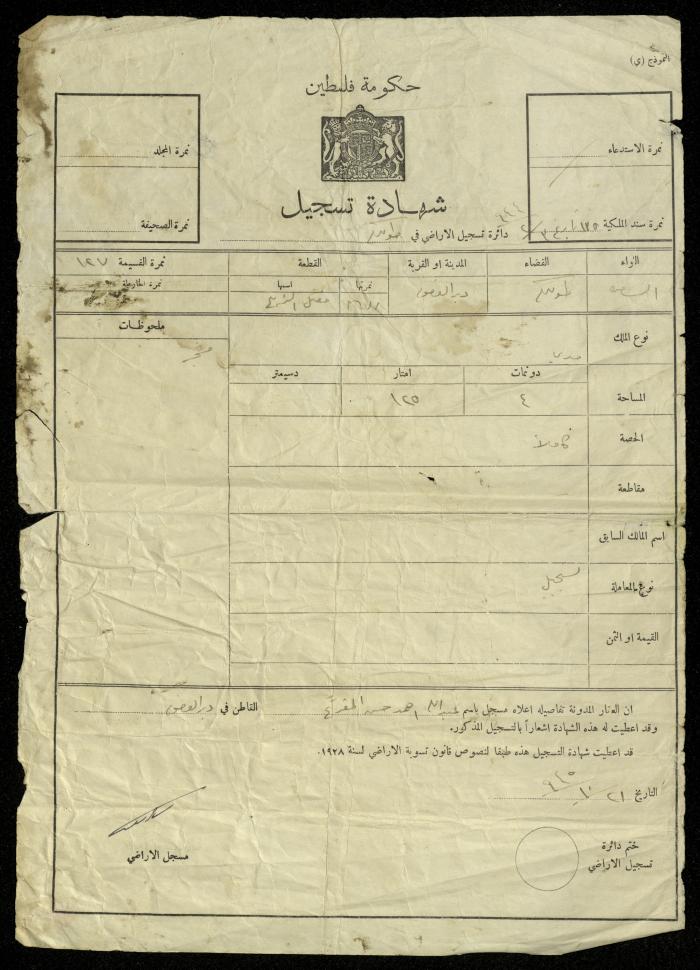 النموذج (ي)
حكومة فلسطين
نمرة الاستدعاء
نمرة المجلد
شهادة تسجيل
نمرة سند الملكية
دائرة تسجيل الاراضي في طولكرم
نمرة الصحيفة
اللواء
القضاء
المدينة او القرية
القطعة
نمرة القسيمة ١٢٧
نمرتها
اسمها
نمرة الخارطة
طولكرم
دير الغصون
نوع الملك
ملحوظات
دونمات
امتار
دسيمتر
المساحة
٤
١٢٥
الحصة
كاملا
مقاطعة
اسم المالك السابق
نوع المعاملة
تسجيل
القيمة او الثمن
ان العقار المدونة تفاصيله اعلاه مسجل باسم عبدالله احمد حسن القاطن في دير الغصون
وقد اعطيت له هذه الشهادة اشعاراً بالتسجيل المذكور.
قد اعطيت شهادة التسجيل هذه طبقا لنصوص قانون تسوية الاراضي لسنة ١٩٢٨.
التاريخ ٢١
ختم دائرة
تسجيل الاراضي
مسجل الاراضي